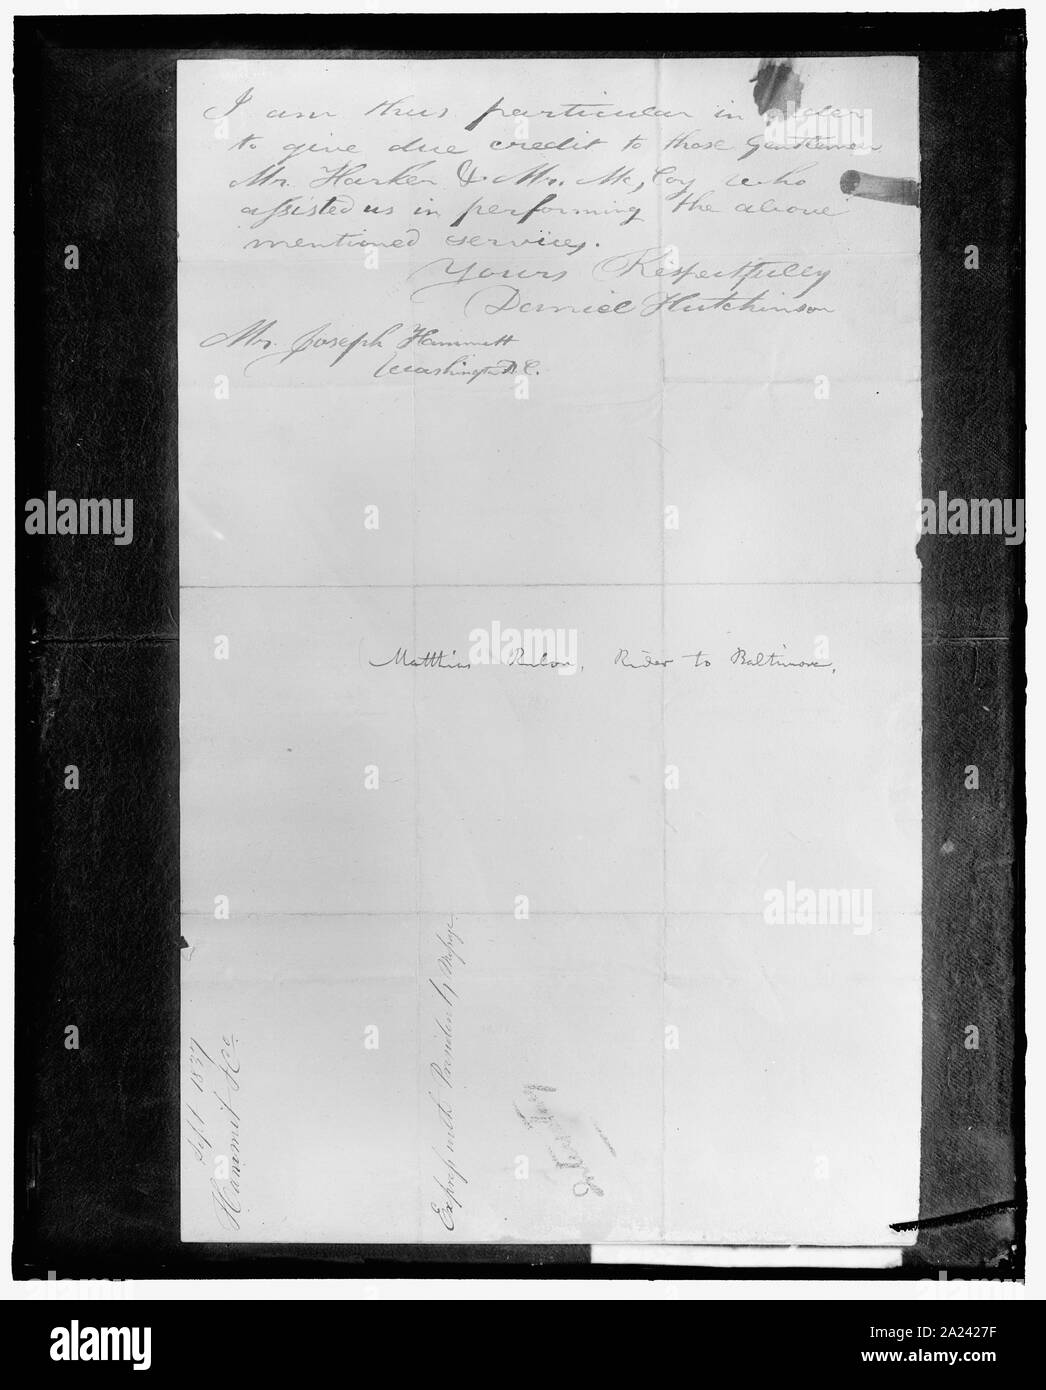 I am thus particular in order
to give due credit to those Gentlemen
Mr. Harker & Mr. Mc, Coy who
assisted us in performing the above
mentioned services.
Yours Respectfully
Daniel Hutchinson
Mr. Joseph Hammett
Washington D. C.
Matthias Rider to Baltimore,
Sept 1837
Hammet
Express with President's Message
alamy
Image ID: 2A2427F
www.alamy.com